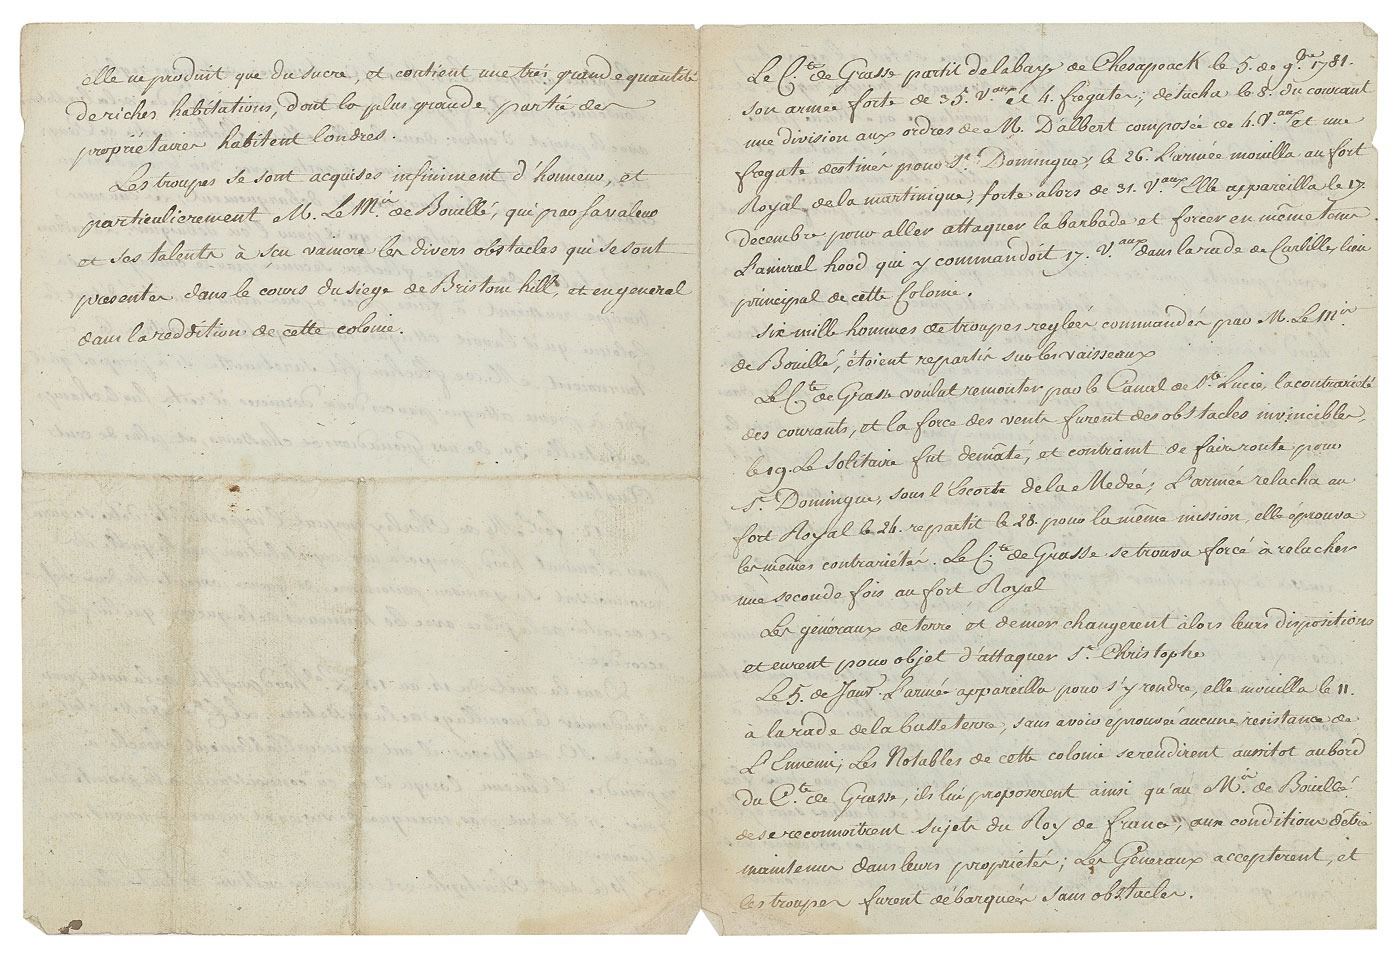 elle ne produit que du sucre, et contient une trés grande quantité
de riches habitations, dont la plus grande partie des
propriétaires habitent londres.
Les troupes se sont acquises infiniment d'honneur, et
particulierement M. Le M.is de Bouillé, qui par sa valeur
et ses talents à sçu vaincre les divers obstacles qui se sont
presentés dans le cours du siege de Bristom hill, et en general
dans la reddition de cette colonie.
Le C.te de Grasse partit de la baye de Chesapeack le 5. de 9.bre 1781.
son armée forte de 35. V.aux et 4. frégates; detacha le 8. du courant
une division aux ordres de M. D'albert composée de 4. V.aux et une
fregate destinés pour S.t Domingue; le 26. L'armée mouilla au fort
Royal de la martinique, forte alors de 31. V.aux Elle appareilla le 17.
decembre pour aller attaquer la barbade et forcer en même tems
L'amiral hood qui y commandoit 17. V.aux dans la rade de Carlille, lieu
principal de cette Colonie.
six mille hommes de troupes reglées commandés par M. Le M.is
de Bouillé, étoient repartis sur les vaisseaux
Le C.te de Grasse voulut remonter par le Canal de S.te Lucie, la contrariété
des courants, et la force des vents furent des obstacles invincibles,
le 19. Le Solitaire fut demâté, et contraint de faire route pour
S.t Domingue, sous l'Escorte de la Medée; L'armée relacha au
fort Royal le 24. repartit le 28. pour la même mission, elle éprouva
les mêmes contrariétés. Le C.te de Grasse se trouva forcé à relacher
une seconde fois au fort Royal
Les généraux de terre et de mer changerent alors leurs dispositions
et eurent pour objet d'attaquer S.t Christophe
Le 5. de Janv.r L'armée appareilla pour s'y rendre, elle mouilla le 11.
à la rade de la basse terre, sans avoir éprouvée aucune resistance de
L'Ennemi; Les Notables de cette colonie se rendirent aussitot au bord
du C.te de Grasse, ils lui proposerent ainsi qu'au M.is de Bouillé
de se reconnoitrent sujets du Roy de france, aux conditions d'être
maintenus dans leurs propriétés; Les Généraux accepterent, et
les troupes furent débarquées sans obstacles.